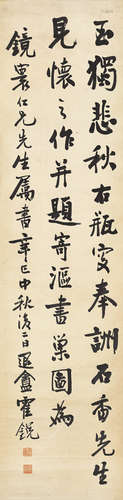 玉獨悲秋右瓶安奉詶石香先生
見懷之作并題寄漚書巢圖為
鏡寰仁兄先生屬書辛巳中秋後二日退盦霍銳